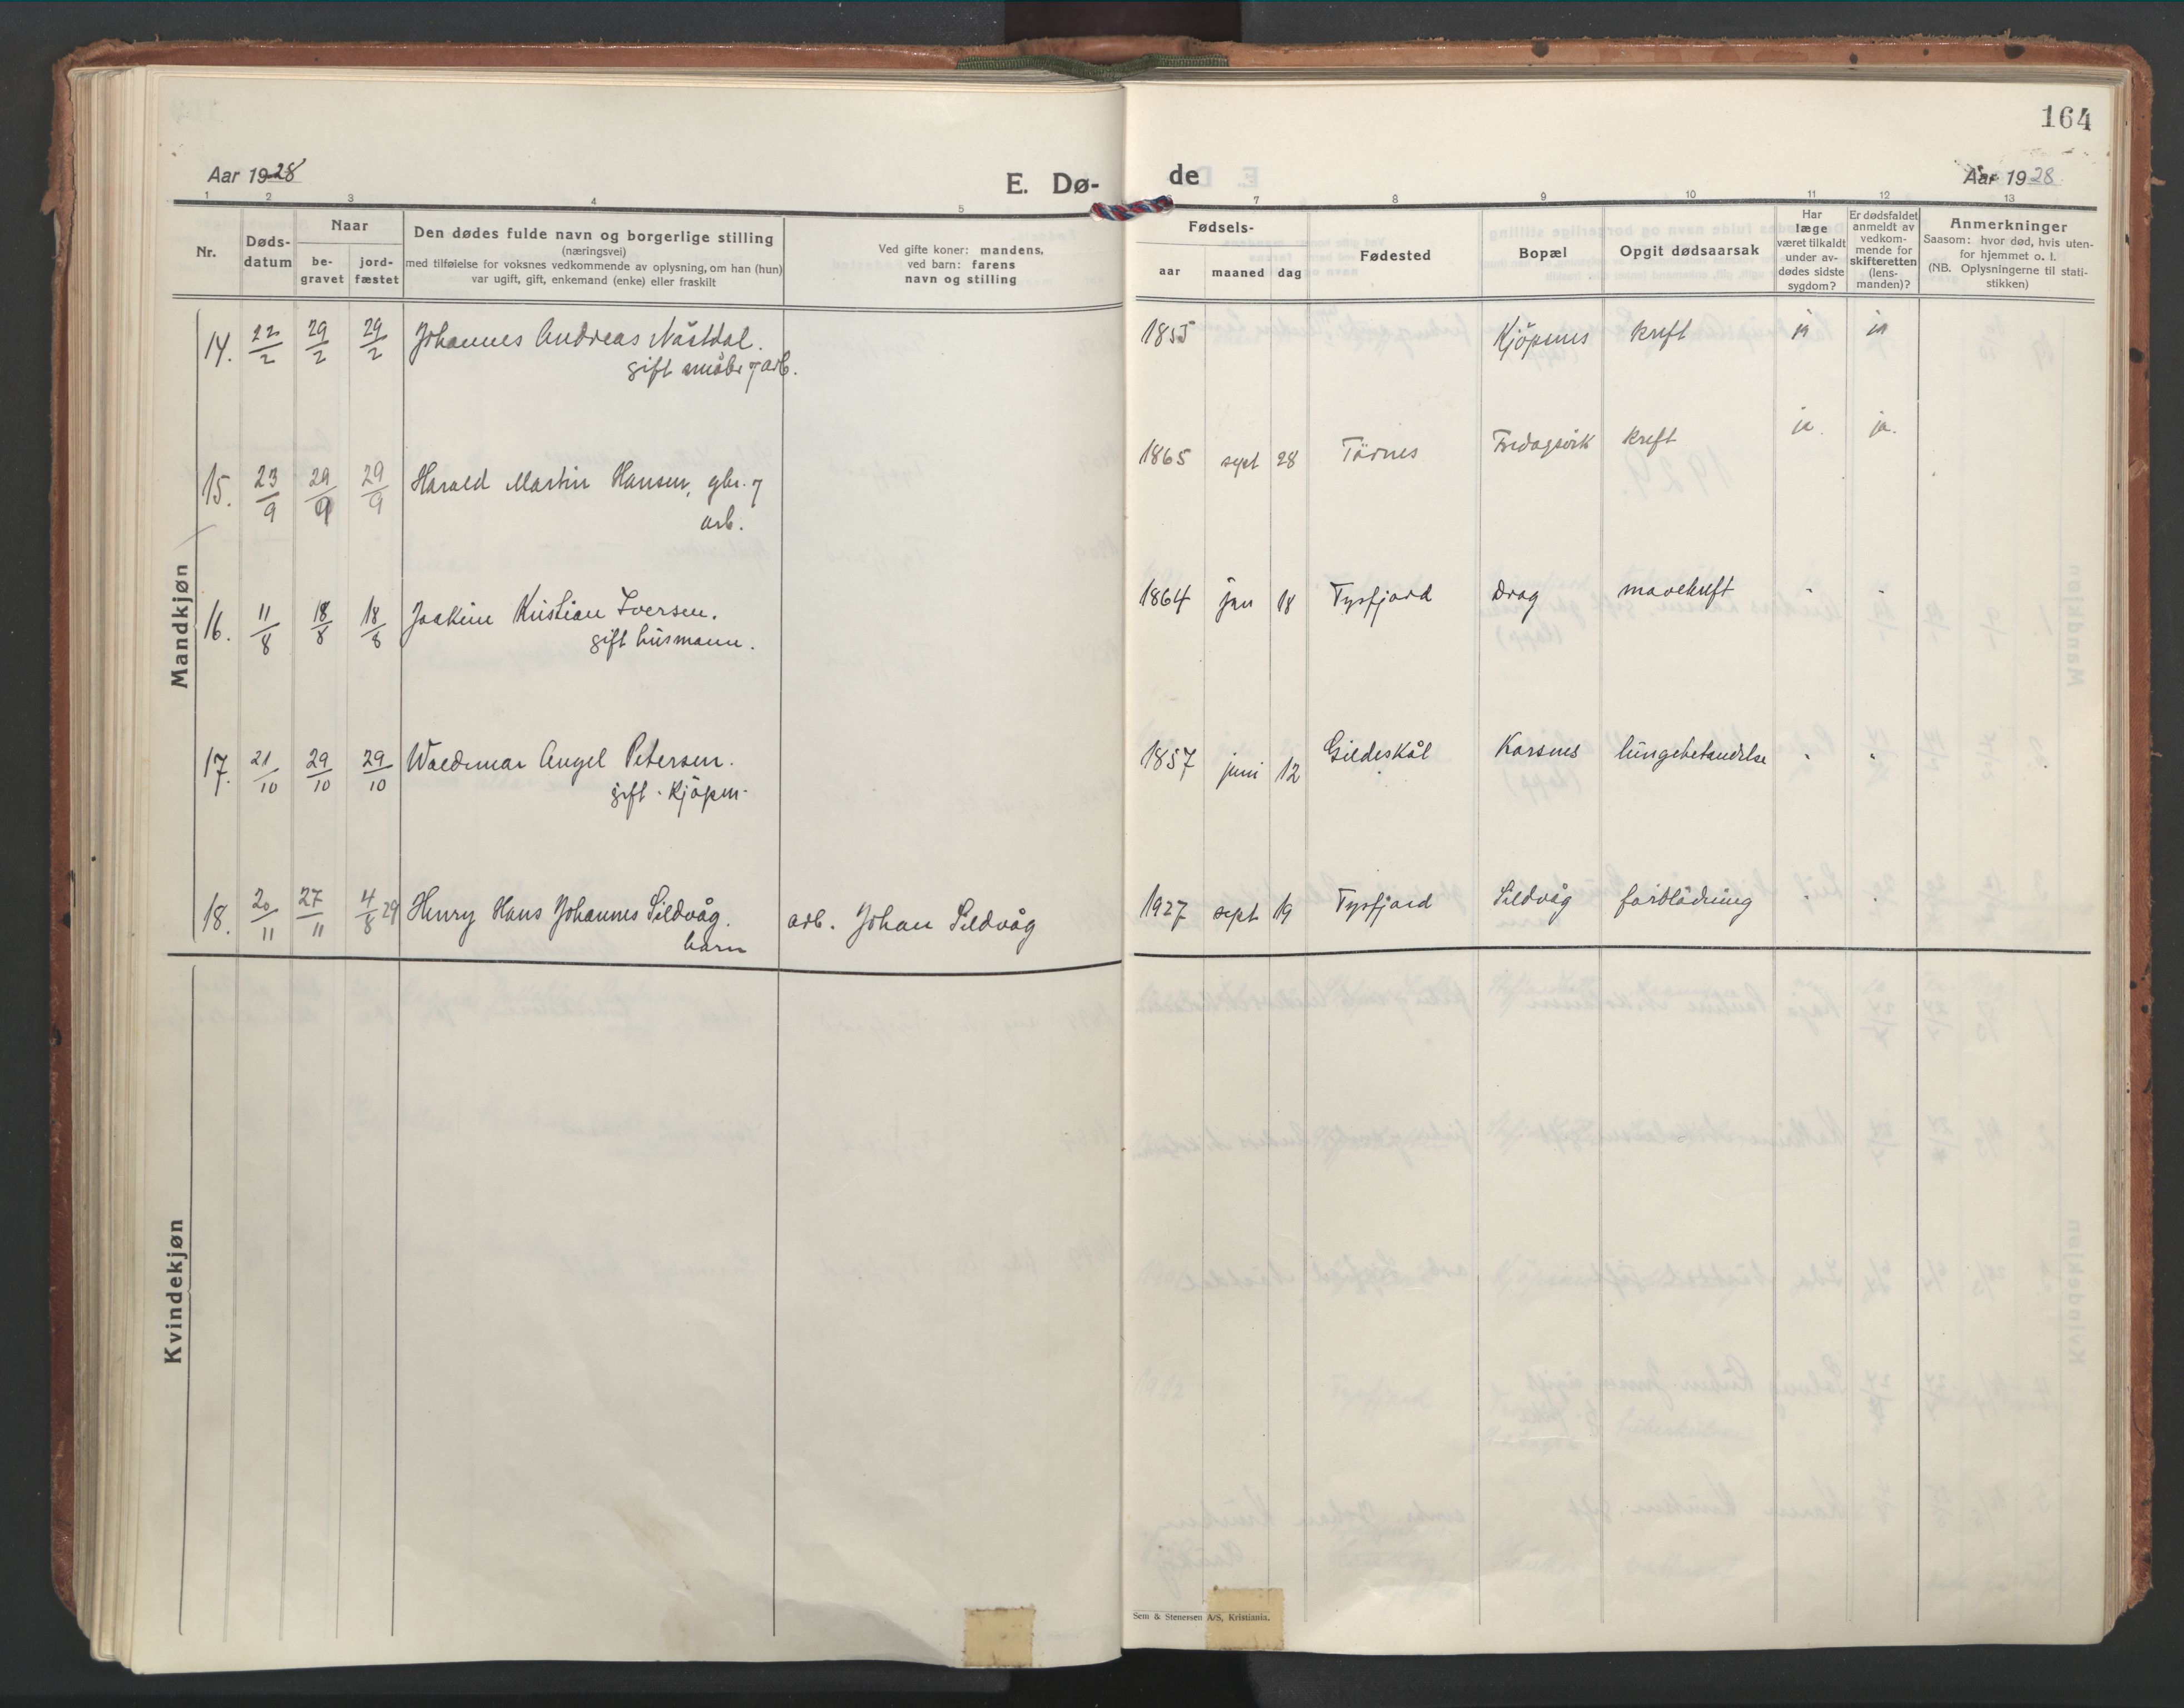 164
Aar 1928
E. Dø-
de
Aar 1928.
1 2 3 4 5 6 7 8 9 10 11 12 13
Nr.
Døds-
datum
Naar
be-
gravet
jord-
fæstet
Den dødes fulde navn og borgerlige stilling
(næringsvei)
med tilføielse for voksnes vedkommende av oplysning, om han (hun)
var ugift, gift, enkemand (enke) eller fraskilt
Ved gifte koner: mandens,
ved barn: farens
navn og stilling
Fødsels-
aar maaned dag
Fødested
Bopæl
Opgit dødsaarsak
Har
læge
været tilkaldt
under av-
dødes sidste
sygdom?
Er dødsfaldet
anmeldt av
vedkom-
mende for
skifteretten
(lens-
manden)?
Anmerkninger
Saasom: hvor død, hvis uten-
for hjemmet o. l.
(NB. Oplysningerne til stati-
stikken)
Mandkjøn
14. 22/2 29/2 29/2 Johannes Andreas Nästdal. 1855 Kjöpsnes kreft ja ja
gift småbr og arb.
15. 23/9 29/9 29/9 Harald Martin Hansen, gbr. og 1865 sept 28 Tårnes Fredagsvik kreft ja. ja.
arb.
16. 11/8 18/8 18/8 Joakim Kristian Iversen. 1864 jan 18 Tysfjord Drag mavekreft " "
gift husmann.
17. 21/10 29/10 29/10 Waldemar Angel Petersen. 1857 juni 12 Gildeskål Korsnes lungebetendelse " "
gift. Kjöpm.
18. 20/11 27/11 4/8 29 Henry Hans Johannes Sildvåg. arb. Johan Sildvåg 1927 sept 19 Tysfjord Sildvåg forblödning " "
barn
Kvindekjøn
Sem & Stenersen A/S, Kristiania.